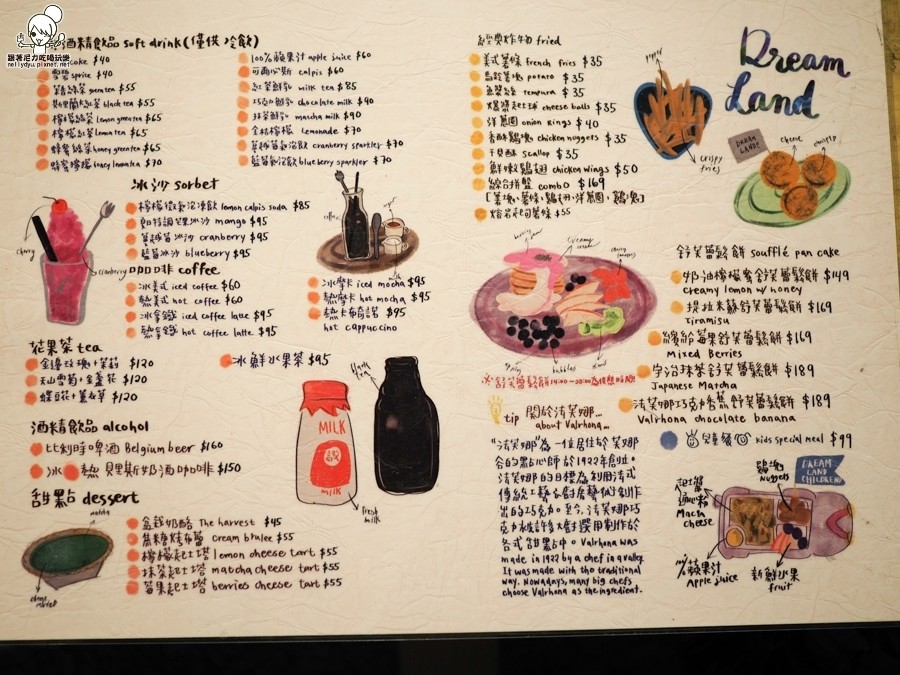 跟著尼力吃喝玩樂
nellydyu.pixnet.net
酒精飲品 soft drink (僅供冷飲)
coke $40
雪碧 sprite $40
green tea $55
斯里蘭卡紅茶 black tea $55
檸檬綠茶 lemon green tea $65
檸檬紅茶 lemon tea $65
蜂蜜綠茶 honey green tea $65
蜂蜜檸檬 $70
100%蘋果汁 apple juice $60
可爾必斯 calpis $60
紅茶鮮奶 milk tea $85
巧克力鮮奶 chocolate milk $90
抹茶鮮奶 matcha milk $90
金桔檸檬 Lemonade $70
蔓越莓氣泡飲 cranberry sparkler $70
藍莓氣泡飲 blueberry sparkler $70
冰沙 sorbet
檸檬檸檬氣泡凍飲 lemon calpis soda $85
mango $95
蔓越莓冰沙 cranberry $95
藍莓冰沙 blueberry $95
cherry
cranberry
咖啡 coffee
冰美式 iced coffee $60
熱美式 hot coffee $60
冰拿鐵 iced coffee latte $95
熱拿鐵 hot coffee latte $95
冰摩卡 iced mocha $95
熱摩卡 hot mocha $95
熱卡布奇諾 $95
hot cappuccino
coffee
milk
花果茶 tea
金邊玫瑰+茉莉 $120
天山雪菊+金盞花 $120
蝶豆花+薑&草 $120
冰鮮水果茶 $95
black tea
MILK
milk
fresh milk
酒精飲品 alcohol
比利時啤酒 Belgium beer $160
冰 熱 貝里斯奶酒咖啡 $150
甜點 dessert
matcha
盆栽奶酪 The harvest $45
焦糖烤布蕾 Cream brulee $55
檸檬起士塔 lemon cheese tart $55
抹茶起士塔 matcha cheese tart $55
莓果起士塔 berries cheese tart $55
經典炸物 fried
美式薯條 french fries $35
馬鈴薯塊 potato $35
魚漿 tempura $35
爆漿起士球 cheese balls $35
洋蔥圈 onion rings $40
香酥雞塊 chicken nuggets $35
干貝酥 scallop $35
鮮嫩雞翅 chicken wings $50
綜合拼盤 combo $169
[薯塊,薯條,雞翅,洋蔥圈,雞塊]
焗烤起司薯條 $55
Dream Land
paper
crispy fries
DREAM LAND
cheese
crispy
creamy
舒芙蕾鬆餅 soufflé pan cake
奶油檸檬蜜舒芙蕾鬆餅 $149
Creamy lemon w/ honey
提拉米蘇舒芙蕾鬆餅 $169
Tiramisu
繽紛莓果舒芙蕾鬆餅 $169
Mixed Berries
宇治抹茶舒芙蕾鬆餅 $189
Japanese Matcha
法芙娜巧克力香蕉舒芙蕾鬆餅 $189
Valrhona chocolate banana
※舒芙蕾鬆餅14:00~20:00為供應時間
tip 關於法芙娜...
about Valrhona...
"法芙娜"為一位居住於芙娜
谷的點心師於1922年創立。
法芙娜的目標為利用法式
傳統工藝&廚房藝術製作
出的巧克力。至今,法芙娜巧
克力被許多大廚選用製作於
各式甜點中。Valrhona was
made in 1922 by a chef in a valley.
It was made with the traditional
way. Nowadays, many big chefs
choose Valrhona as the ingredient.
兒童餐 kids special meal $99
起士通心粉
Mac n cheese
雞塊
Nuggets
DREAM LAND CHILDREN
100%蘋果汁
Apple juice
新鮮水果
fruit